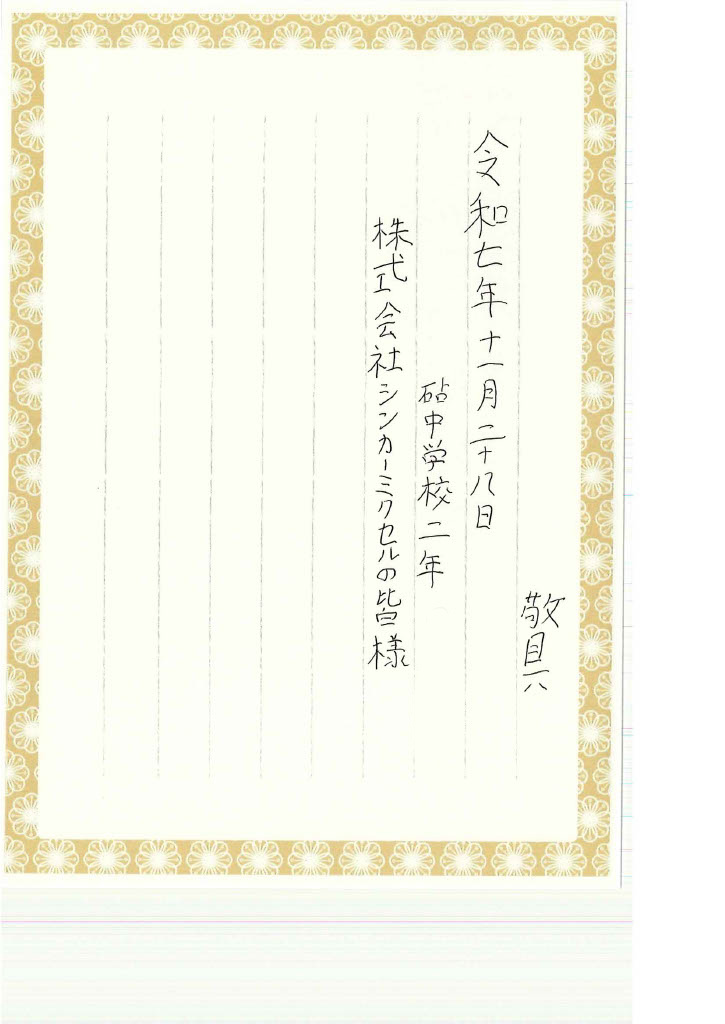 敬具
令和七年十一月二十八日
砧中学校二年
株式会社シンカーミクセルの皆様